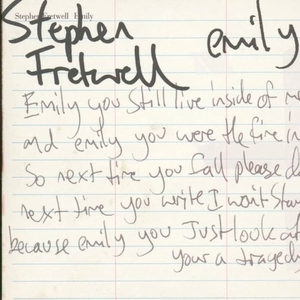 Stephen Fretwell Emily
Stephen emily
Fretwell
Emily you still live inside of me
and emily you were the fire in
So next time you fall please d
next time you write I won't stan
because emily you Just look at
your a tragedi